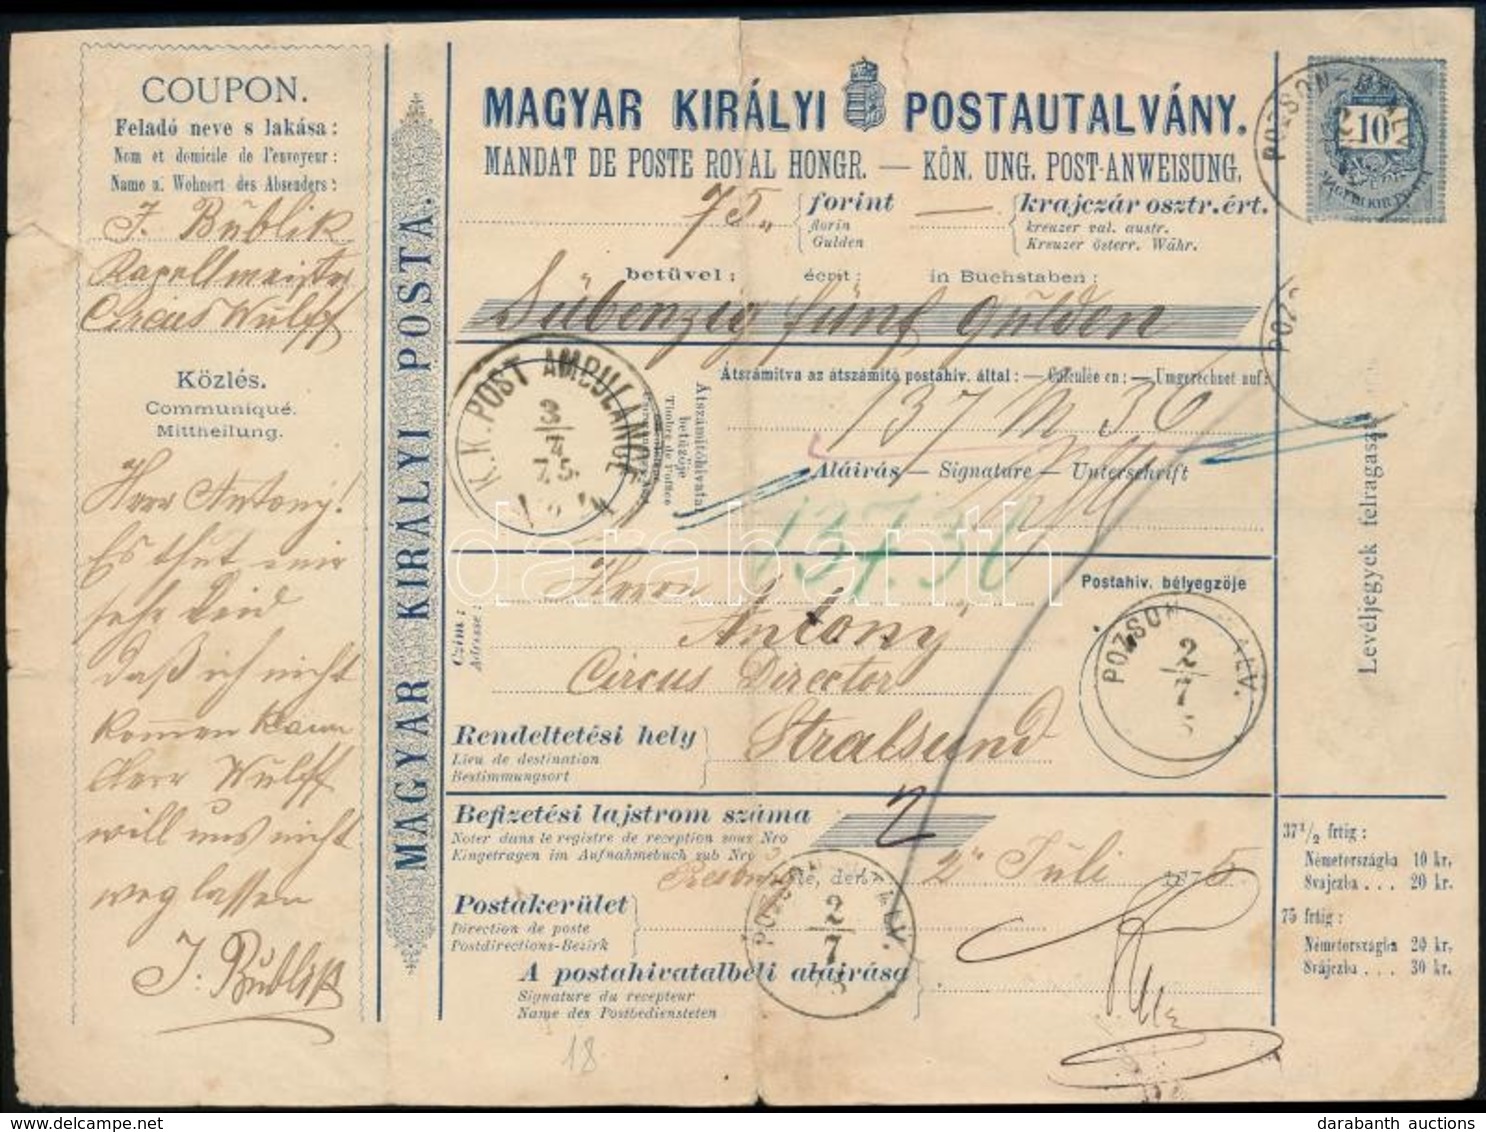 COUPON.
Feladó neve s lakása:
Nom et domicile de l'envoyeur:
Name u. Wohnort des Absenders:
J. Bublik
Kapellmeister
Circus Wulff
Közlés.
Communiqué.
Mittheilung.
Herr Antony!
Es thut mir
sehr Leid
daß ich nicht
kommen kann
Herr Wulff
will uns nicht
weg lassen
J. Bublik
MAGYAR KIRÁLYI POSTA.
MAGYAR KIRÁLYI POSTAUTALVÁNY.
MANDAT DE POSTE ROYAL HONGR. — KÖN. UNG. POST-ANWEISUNG.
75 „ forint — krajczár osztr. ért.
florin kreuzer val. austr.
Gulden Kreuzer österr. Währ.
betüvel: écrit: in Buchstaben:
Sübenzig fünf Gulden
Átszámitva az átszámitó postahiv. által: — Calculée en: — Umgerechnet auf:
137 M 30
Átszámitóhivatal
betüzője
Timbre de l'office
K.K. POST AMBULANCE
3/7
75
Aláirás — Signature — Unterschrift
137.30
Czím:
Adresse:
Herrn
Antony
Circus Director
Rendeltetési hely
Lieu de destination
Bestimmungsort
Stralsund
Postahiv. bélyegzője
POZSON ALV.
2/7
5
Befizetési lajstrom száma
Noter dans le registre de reception sous Nro
Kingetragen im Aufnahmebuch sub Nro
2
te, den 2ten Juli 1875
POZSON
2/7
Postakerület
Direction de poste
Postdirections-Bezirk
A postahivatalbeli aláirása
Signature du recepteur
Name des Postbediensteten
18
POZSON
10
MAGYAR KIR. POSTA
POZS
Levéljegyek felragasz
37 1/2 frtig:
Németországba 10 kr.
Svajczba . . . 20 kr.
75 frtig:
Németországba 20 kr.
Svájczba . . . 30 kr.
darabanth
darabanth auctions